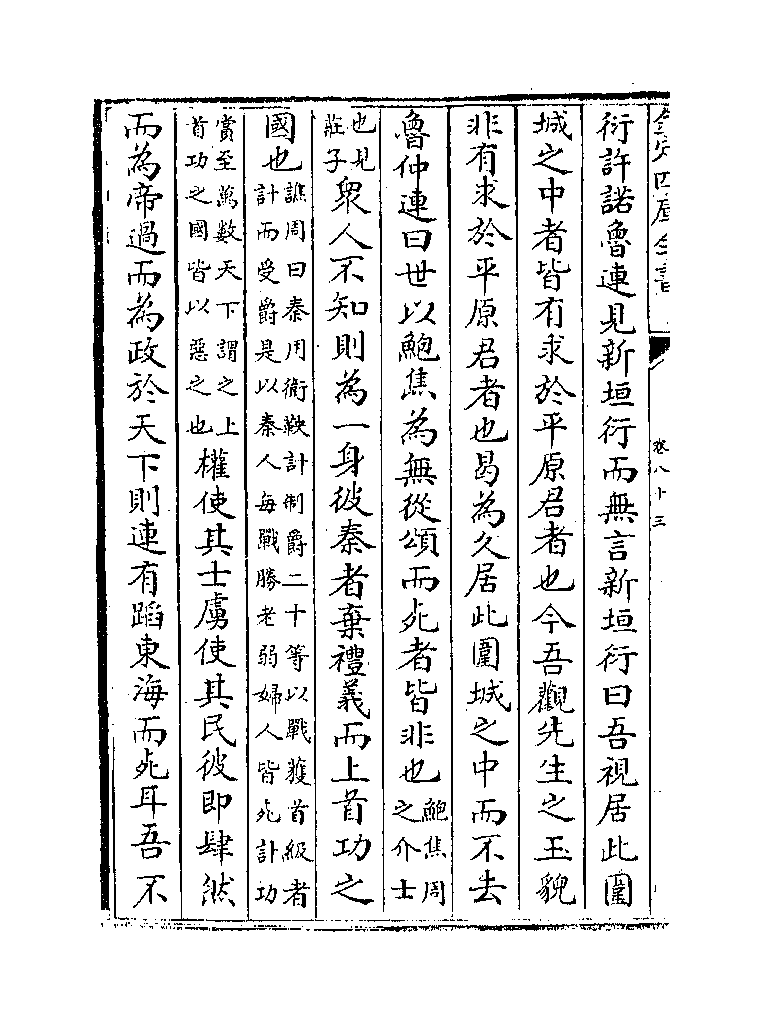 欽定四庫全書
卷八十三
衍許諾魯連見新垣衍而無言新垣衍曰吾視居此圍
城之中者皆有求於平原君者也今吾觀先生之玉貌
非有求於平原君者也曷為久居此圍城之中而不去
魯仲連曰世以鮑焦為無從頌而死者皆非也鮑焦周之介士
也見莊子衆人不知則為一身彼秦者棄禮義而上首功之
國也譙周曰秦用衛鞅計制爵二十等以戰獲首級者計而受爵是以秦人每戰勝老弱婦人皆死計功
賞至萬數天下謂之上首功之國皆以惡之也權使其士虜使其民彼即肆然
而為帝過而為政於天下則連有蹈東海而死耳吾不